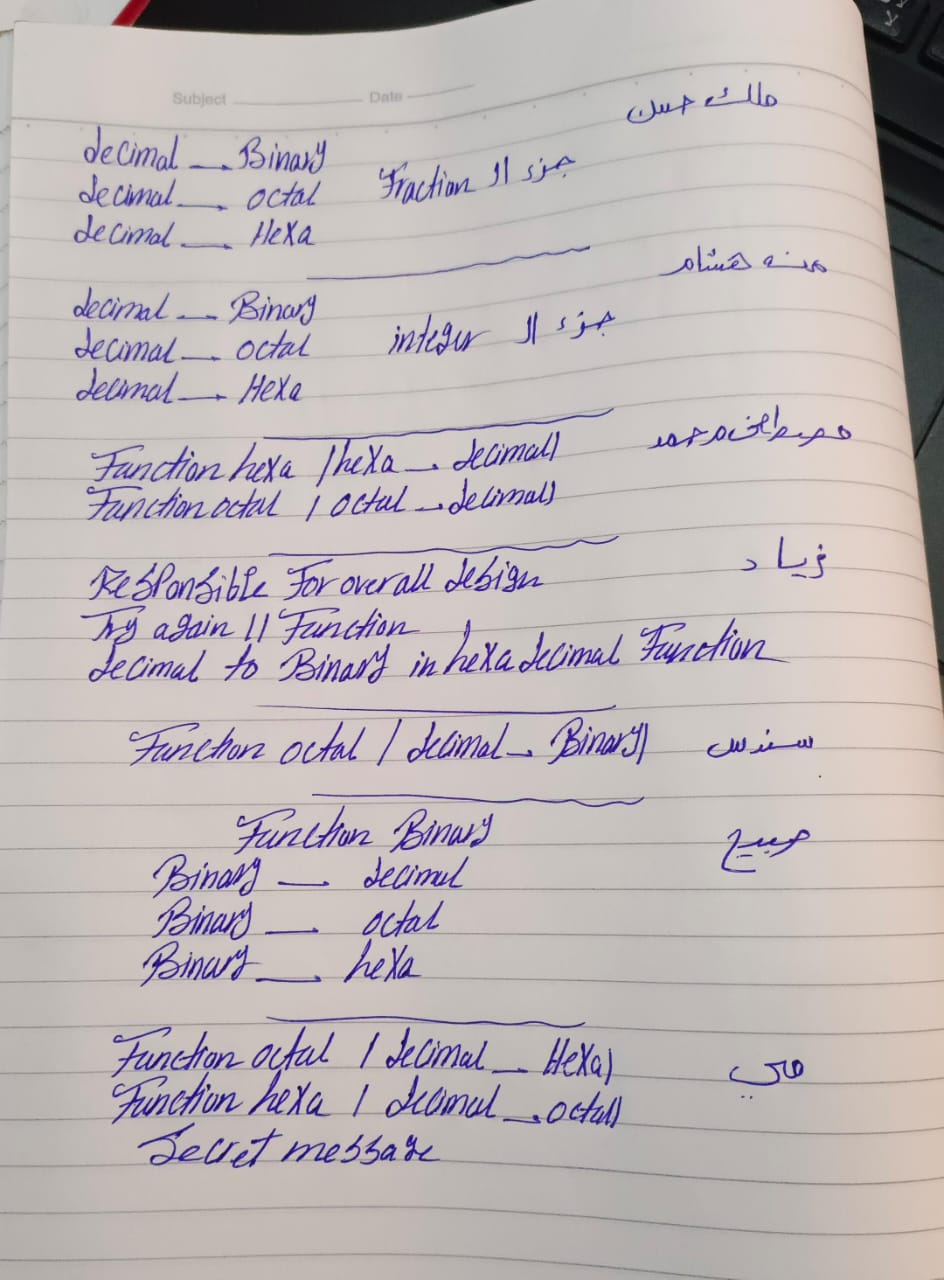 Subject Date
ملك حسن
decimal → Binary
decimal → octal
decimal → Hexa
جزء ال Fraction
منه هشام
decimal → Binary
decimal → octal
decimal → Hexa
جزء ال integer
مصطفى محمد
Function hexa (hexa → decimal)
Function octal (octal → decimal)
زياد
Responsible For overall design
Try again () Function
decimal to Binary in hexadecimal Function
Function octal (decimal → Binary) سندس
Function Binary
صبيح
Binary → decimal
Binary → octal
Binary → hexa
Function octal (decimal → Hexa)
مي
Function hexa (decimal → octal)
Secret message